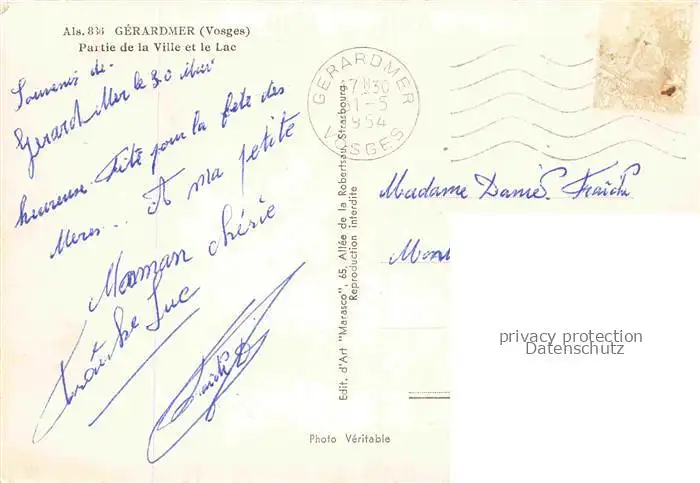 Als. 836 GÉRARDMER (Vosges)
Partie de la Ville et le Lac
Souvenir de
Gerard Mer le 30 Mai
heureuse fête pour la fête des
Meres... A ma petite
Maman chérie
Luc
GERARDMER
17H30
31-5
1954
VOSGES
Edit. d'Art "Marasco", 65, Allée de la Robertsau, Strasbourg
Reproduction interdite
Madame
privacy protection
Datenschutz
Photo Véritable